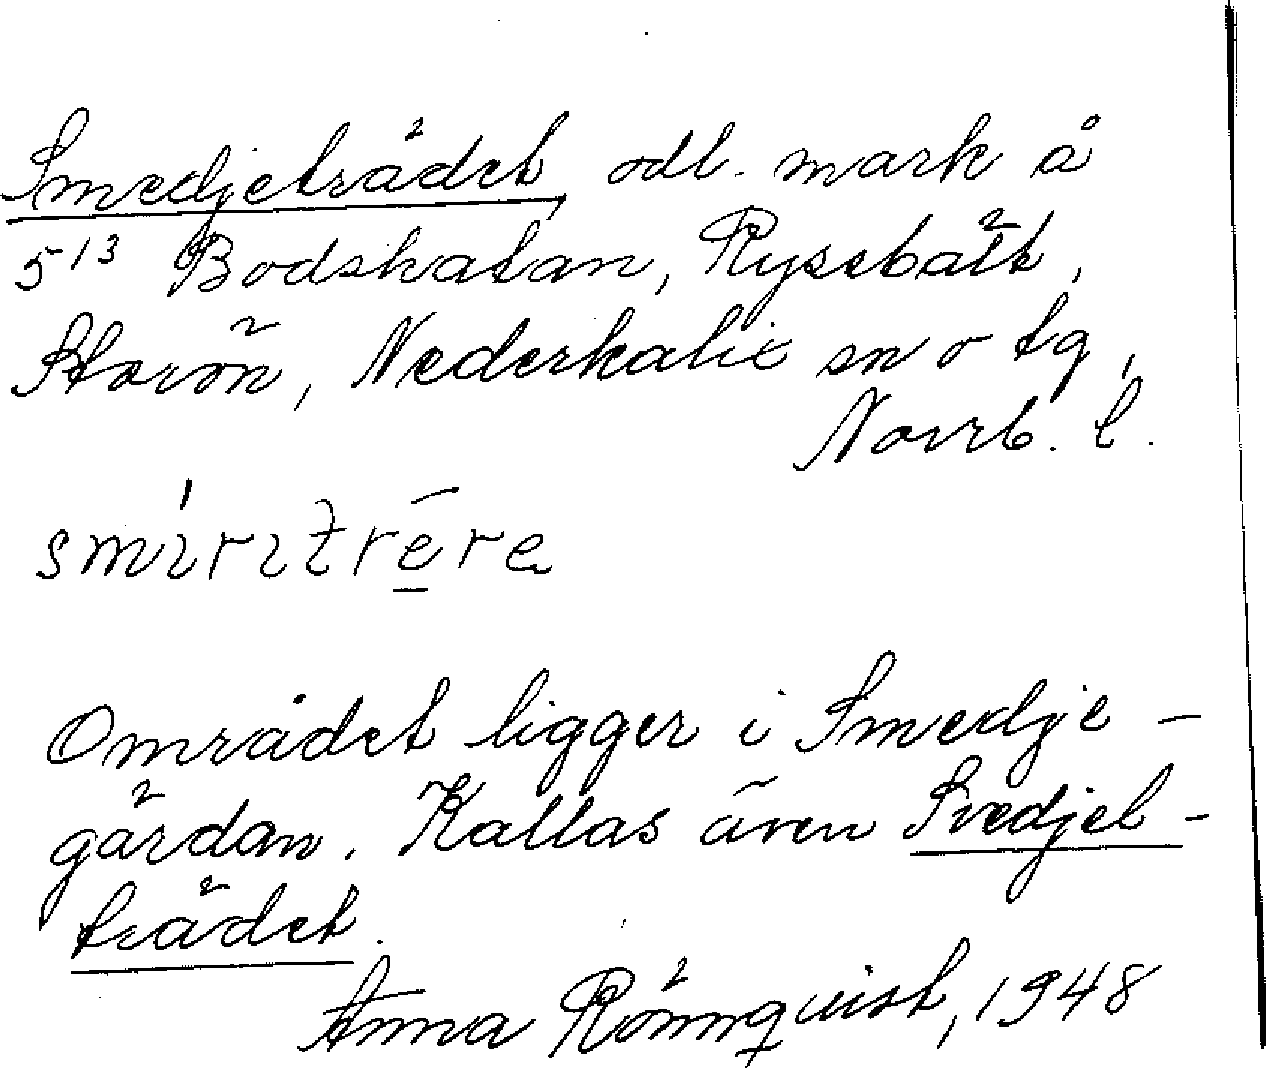 Smedjeträdet, odl. mark å
5¹³ Bodskatan, Rysebält,
Storön, Nederkalix sn o tg,
Norrb. l.
smı̀rıtrēre
Området ligger i Smedje-
gärdan. Kallas även Svedjet-
trädet.
Anna Rönnqvist, 1948